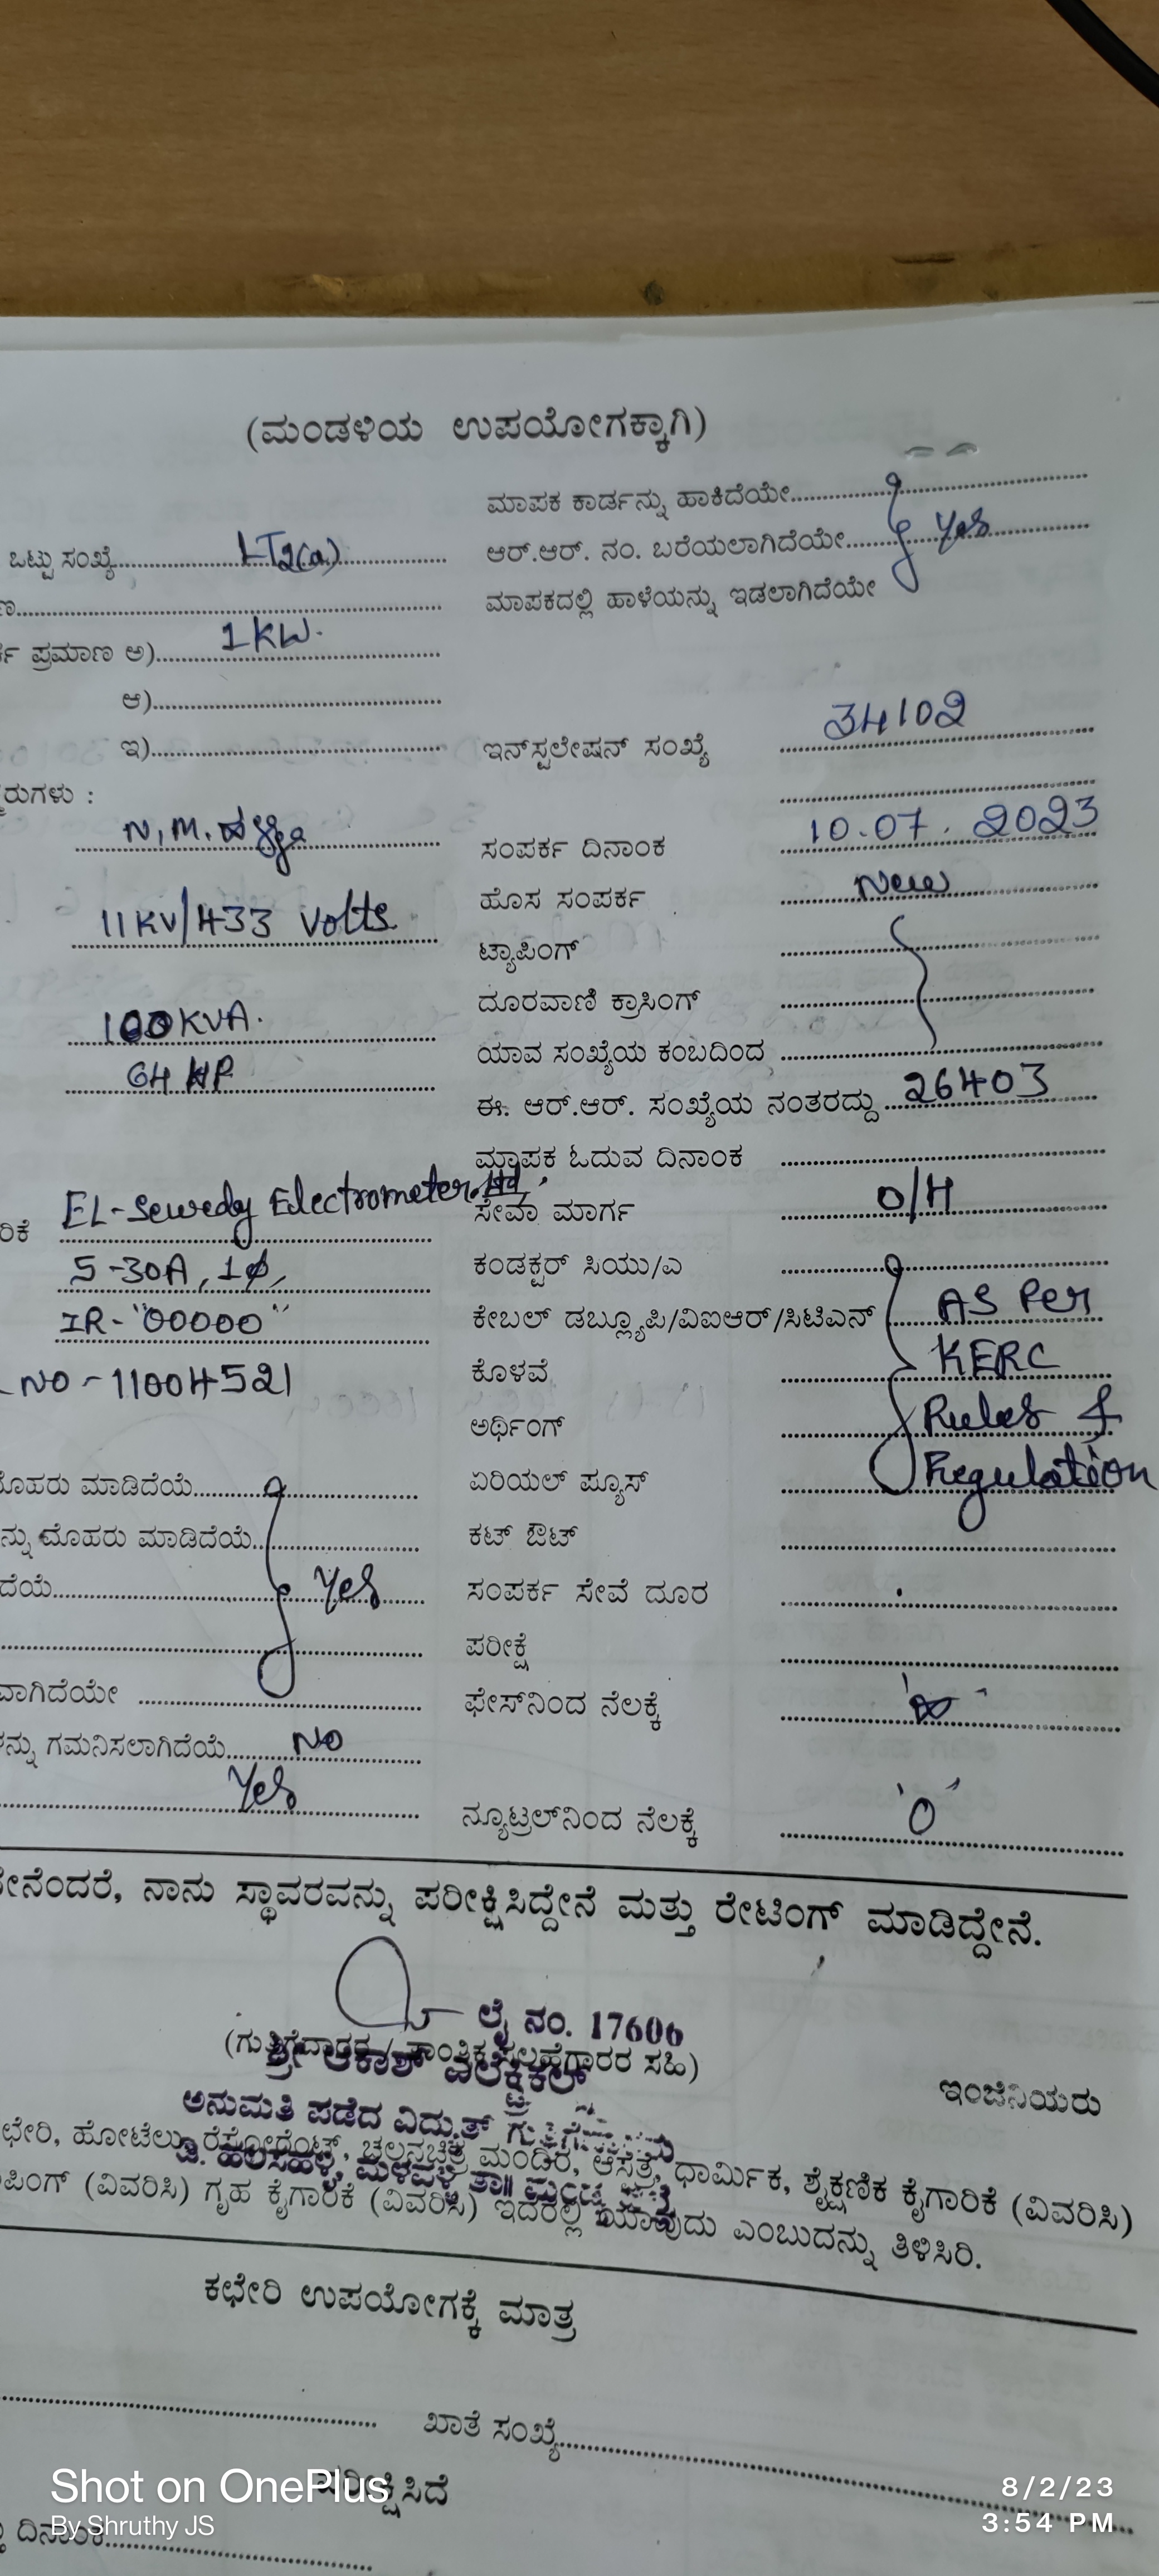 (ಮಂಡಳಿಯ ಉಪಯೋಗಕ್ಕಾಗಿ)
ಮಾಪಕ ಕಾರ್ಡನ್ನು ಹಾಕಿದೆಯೇ
ಒಟ್ಟು ಸಂಖ್ಯೆ LT2(a)
ಆರ್.ಆರ್. ನಂ. ಬರೆಯಲಾಗಿದೆಯೇ Yes
ಮಾಪಕದಲ್ಲಿ ಹಾಳೆಯನ್ನು ಇಡಲಾಗಿದೆಯೇ
ಪ್ರಮಾಣ ಅ) 1KW.
ಆ)
ಇ)
ಇನ್‌ಸ್ಟಲೇಷನ್ ಸಂಖ್ಯೆ 34102
N.M.
ಸಂಪರ್ಕ ದಿನಾಂಕ 10.07.2023
ಹೊಸ ಸಂಪರ್ಕ New
11KV/433 Volts
ಟ್ಯಾಪಿಂಗ್
ದೂರವಾಣಿ ಕ್ರಾಸಿಂಗ್
100KVA.
ಯಾವ ಸಂಖ್ಯೆಯ ಕಂಬದಿಂದ
64 HP
ಈ. ಆರ್.ಆರ್. ಸಂಖ್ಯೆಯ ನಂತರದ್ದು 26403
ಮಾಪಕ ಓದುವ ದಿನಾಂಕ
EL-Sewedy Electrometer.Ltd,
ಸೇವಾ ಮಾರ್ಗ O/H
5-30A, 1ϕ,
ಕಂಡಕ್ಟರ್ ಸಿಯು/ಎ
IR-"00000"
ಕೇಬಲ್ ಡಬ್ಲ್ಯೂಪಿ/ವಿಐಆರ್/ಸಿಟಿಎನ್ AS Per
NO-11004521
ಕೊಳವೆ KERC
ಅರ್ಥಿಂಗ್ Rules &
ಮಾಡಿದೆಯೆ
ಏರಿಯಲ್ ಪ್ಯೂಸ್ Regulation
ಮೊಹರು ಮಾಡಿದೆಯೆ
ಕಟ್ ಔಟ್
Yes
ಸಂಪರ್ಕ ಸೇವೆ ದೂರ
ಪರೀಕ್ಷೆ
ಫೇಸ್‌ನಿಂದ ನೆಲಕ್ಕೆ
ಗಮನಿಸಲಾಗಿದೆಯೆ NO
Yes
ನ್ಯೂಟ್ರಲ್‌ನಿಂದ ನೆಲಕ್ಕೆ '0'
ನಾನು ಸ್ಥಾವರವನ್ನು ಪರೀಕ್ಷಿಸಿದ್ದೇನೆ ಮತ್ತು ರೇಟಿಂಗ್ ಮಾಡಿದ್ದೇನೆ.
ಲೈ ನಂ. 17606
ಸಹಿ)
ಶ್ರೀ ಆಕಾಶ್ ಎಲೆಕ್ಟ್ರಿಕಲ್
ಇಂಜಿನಿಯರು
ಅನುಮತಿ ಪಡೆದ ವಿದ್ಯುತ್
ಹೋಟೆಲು, ರೆಸ್ಟೋರೆಂಟ್, ಚಲನಚಿತ್ರ ಮಂದಿರ, ಆಸ್ಪತ್ರೆ, ಧಾರ್ಮಿಕ, ಶೈಕ್ಷಣಿಕ ಕೈಗಾರಿಕೆ (ವಿವರಿಸಿ)
(ವಿವರಿಸಿ) ಗೃಹ ಕೈಗಾರಿಕೆ (ವಿವರಿಸಿ) ಇದರಲ್ಲಿ ಯಾವುದು ಎಂಬುದನ್ನು ತಿಳಿಸಿರಿ.
ಕಛೇರಿ ಉಪಯೋಗಕ್ಕೆ ಮಾತ್ರ
ಖಾತೆ ಸಂಖ್ಯೆ
ಪರೀಕ್ಷಿಸಿದೆ
ದಿನಾಂಕ
Shot on OnePlus
By Shruthy JS
8/2/23
3:54 PM